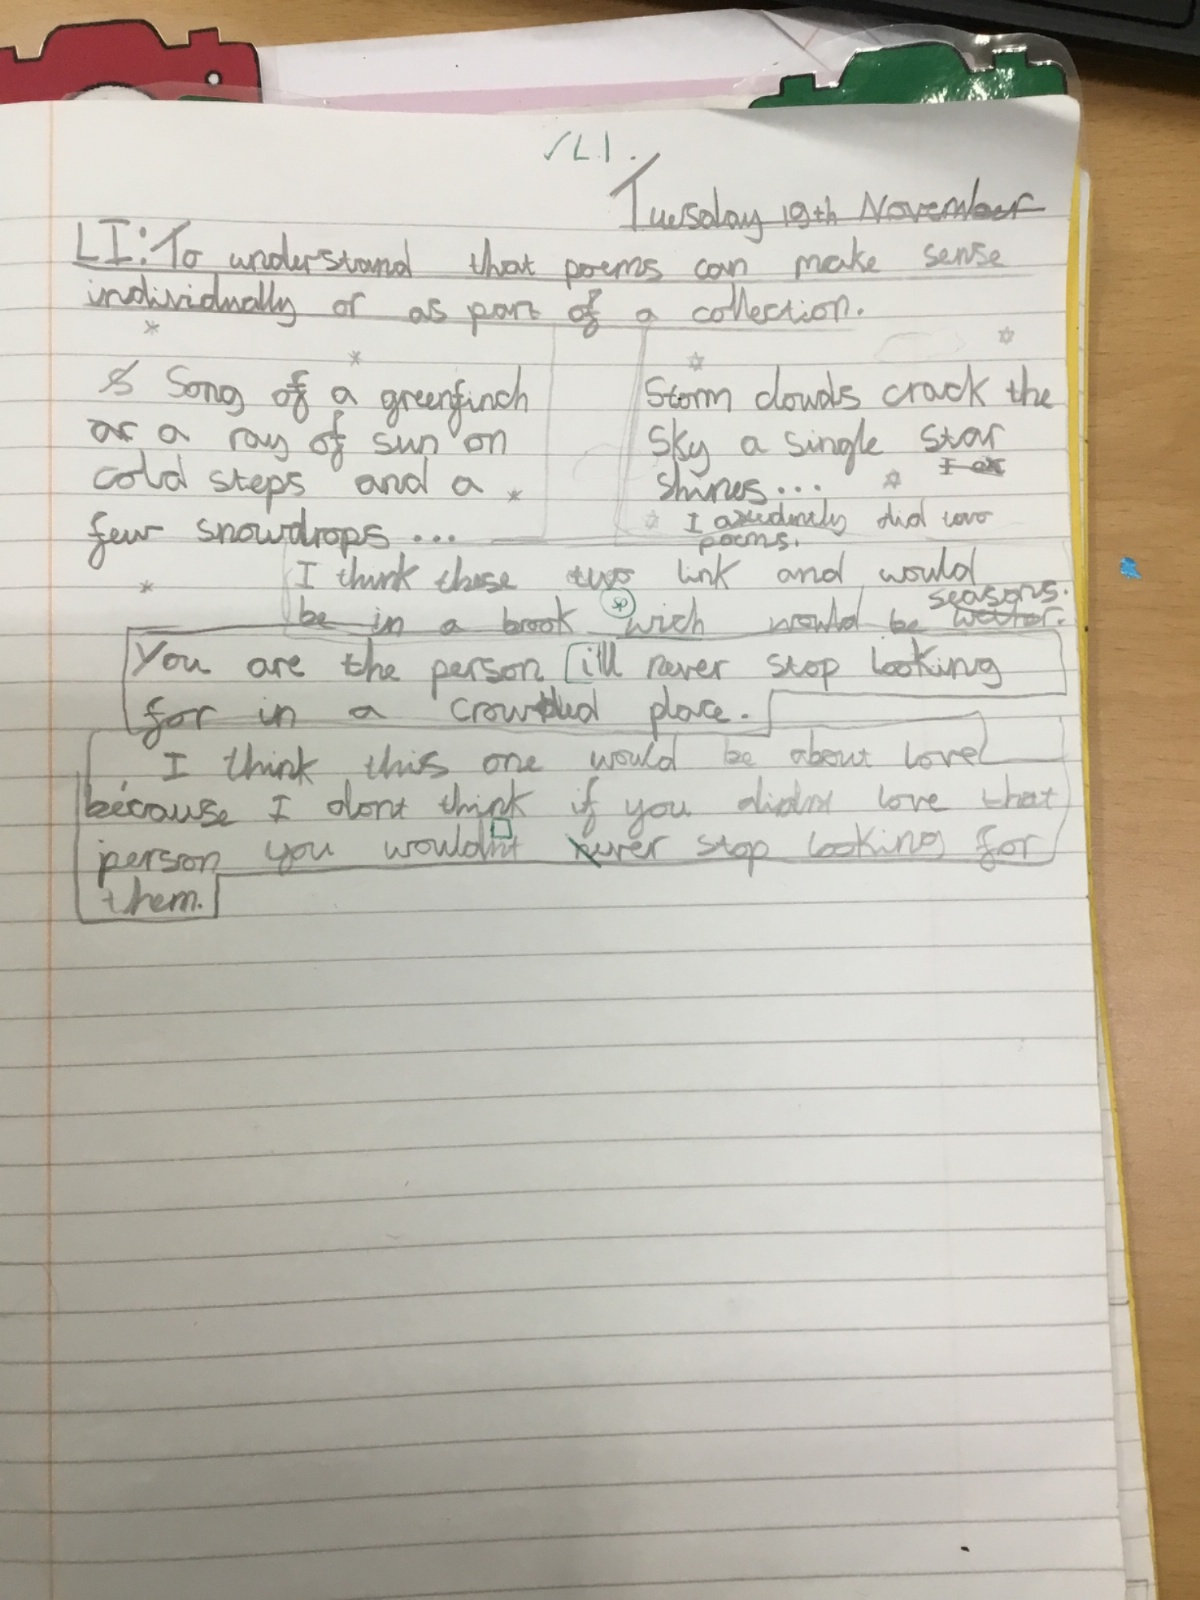 ✓L.I.
Tuesday 19th November
LI: To understand that poems can make sense
individually or as part of a collection.
Song of a greenfinch
or a ray of sun on
cold steps and a
few snowdrops...
Storm clouds crack the
sky a single star
shines...
I axedinely did two
poems.
I think these two link and would
be in a book wich would be seasons.
sp
You are the person ill never stop looking
for in a crowded place.
I think this one would be about love
because I dont think if you didnt love that
person you wouldnt never stop looking for
them.